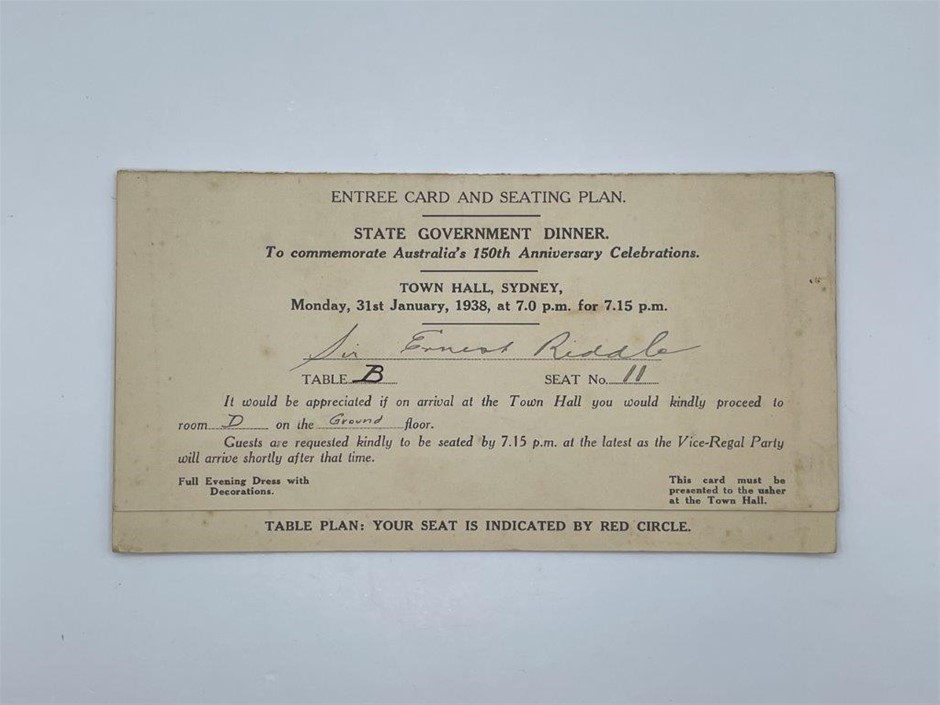 ENTREE CARD AND SEATING PLAN.
STATE GOVERNMENT DINNER.
To commemorate Australia's 150th Anniversary Celebrations.
TOWN HALL, SYDNEY,
Monday, 31st January, 1938, at 7.0 p.m. for 7.15 p.m.
Sir Ernest Riddle
TABLE B SEAT No. 11
It would be appreciated if on arrival at the Town Hall you would kindly proceed to
room D on the Ground floor.
Guests are requested kindly to be seated by 7.15 p.m. at the latest as the Vice-Regal Party
will arrive shortly after that time.
Full Evening Dress with
Decorations.
This card must be
presented to the usher
at the Town Hall.
TABLE PLAN: YOUR SEAT IS INDICATED BY RED CIRCLE.